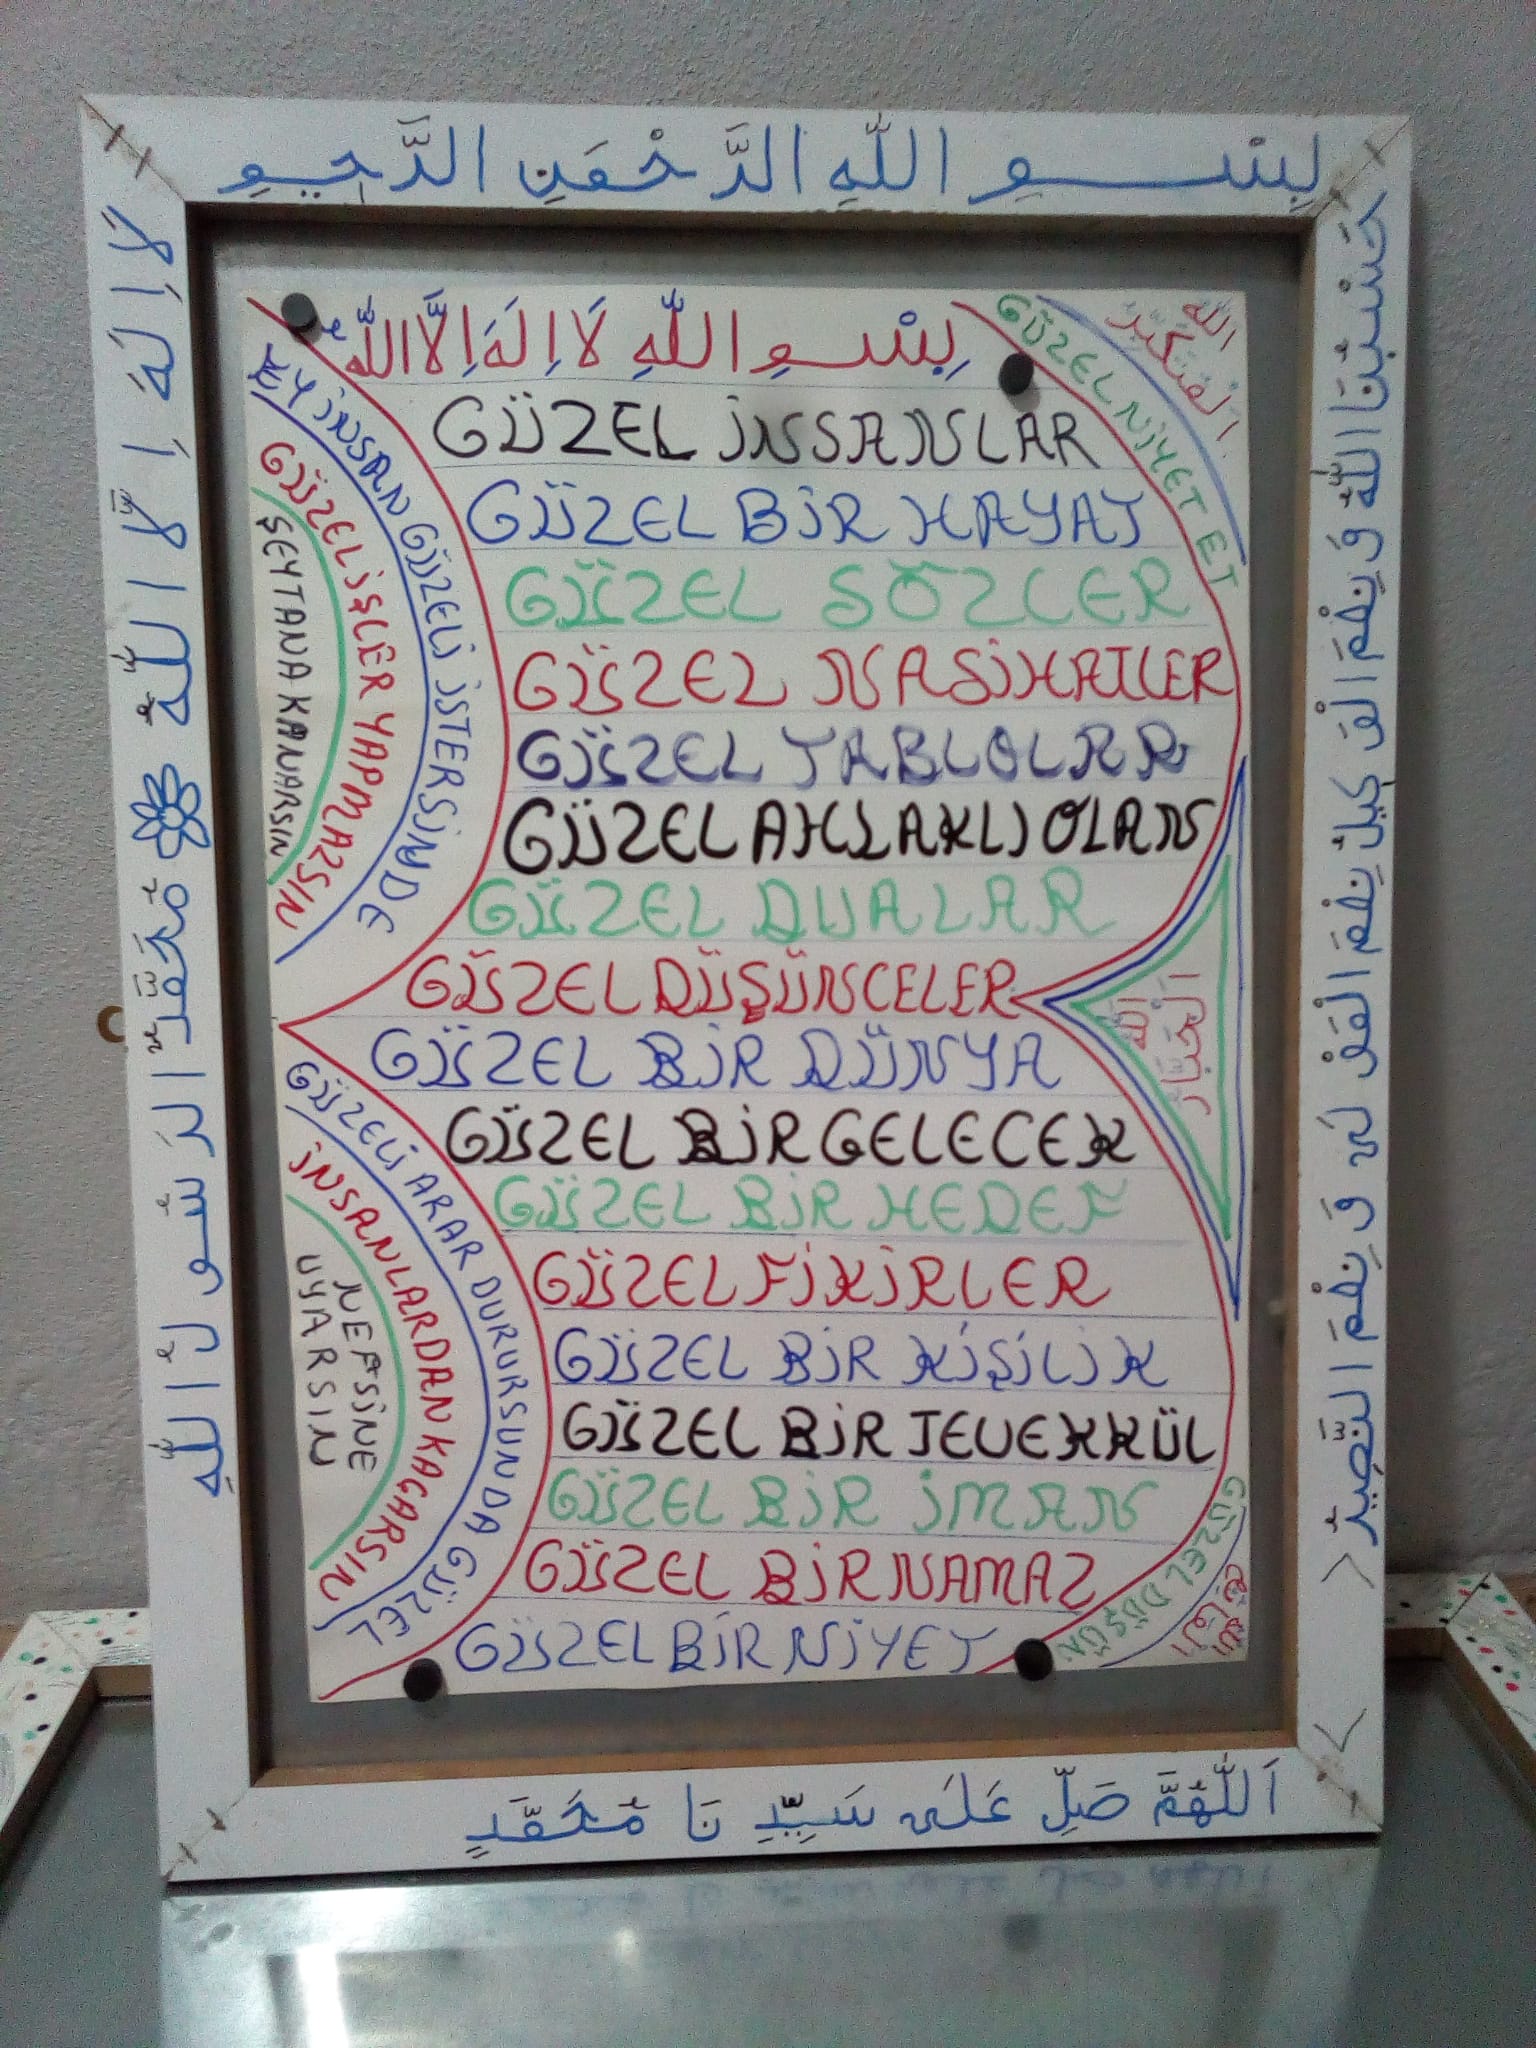 بِسْــــمِ اللّٰهِ الرَّحْمَنِ الرَّحِيمِ
لَا اِلَهَ اِلَّا اللّٰهُ مُحَمَّدٌ الرَسُولُ اللّٰهِ
حَسْبُنَا اللّٰهُ وَ نِعْمَ الْوَكِيلُ نِعْمَ الْمَوْلَى وَ نِعْمَ النَّصِيرُ
بِسْــمِ اللّٰهِ لَا اِلَهَ اِلَّا اللّٰهُ
GÜZEL İNSANLAR
GÜZEL BİR HAYAT
GÜZEL SÖZLER
GÜZEL NASİHATLER
GÜZEL TABLOLAR
GÜZEL AHLAKLI OLAN
GÜZEL DUALAR
GÜZEL DÜŞÜNCELER
GÜZEL BİR DÜNYA
GÜZEL BİR GELECEK
GÜZEL BİR HEDEF
GÜZEL FİKİRLER
GÜZEL BİR KİŞİLİK
GÜZEL BİR TEVEKKÜL
GÜZEL BİR İMAN
GÜZEL BİR NAMAZ
GÜZEL BİR NİYET
EY İNSAN GÜZELİ İSTERSİNDE
GÜZEL İŞLER YAPMAZSIN
ŞEYTANA KANARSIN
GÜZELİ ARAR DURURSUN DA GÜZEL
İNSANLARDAN KAÇARSIN
NEFSİNE
UYARSIN
GÜZEL NİYET ET
اللّٰه
الْمُتَكَبِّرُ
اللّٰه
اَلْجَبَّارُ
GÜZEL DÜŞÜN
اَللّٰهُمَّ صَلِّ عَلَى سَيِّدِ نَا مُحَمَّدٍ